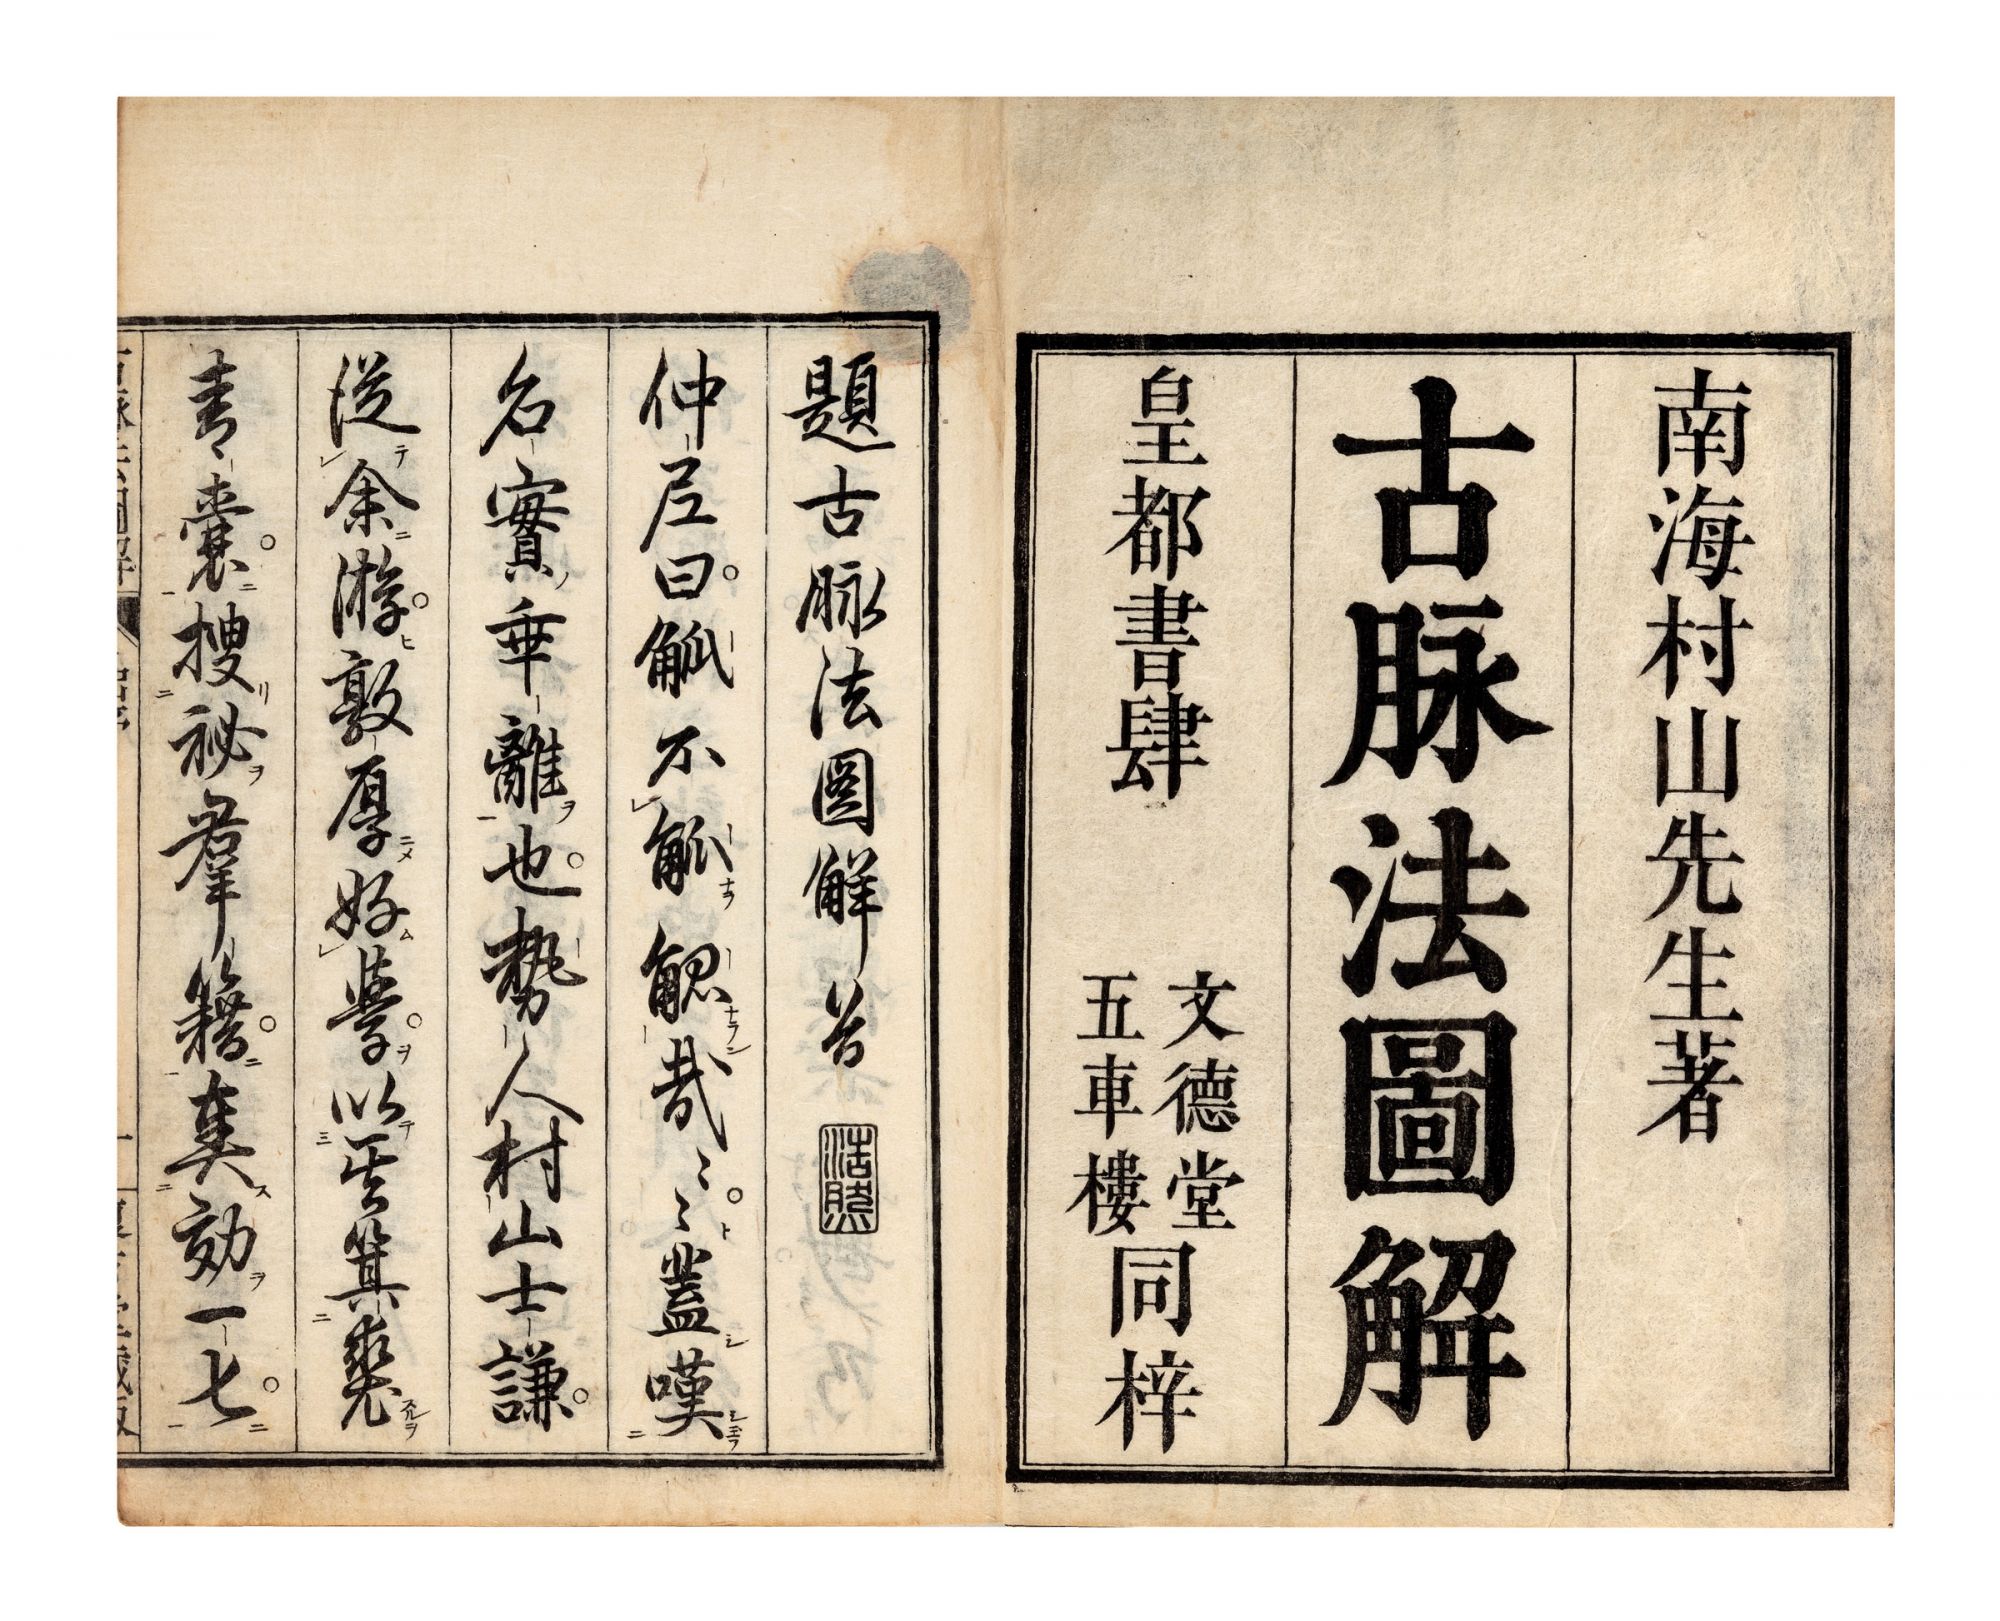 南海村山先生著
古脉法圖解
皇都書肆
文德堂
五車樓
同梓
題古脉法圖解首
仲尼曰觚不觚觚哉〻〻蓋嘆
名實乖離也勢人村山士謙
從余游敦厚好學以其箕裘
青囊搜祕羣籍奏効一七